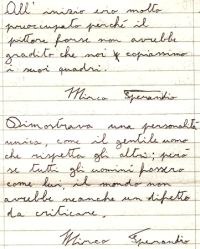 All' inizio ero molto
preoccupato perché il
pittore forse non avrebbe
gradito che noi copiassimo
i suoi quadri.
Mirco Sperandio
Dimostrava una personalità
unica, com il gentile uomo
che rispetta gli altri; però
se tutti gli uomini fossero
come lui, il mondo non
avrebbe neanche un difetto
da criticare.
Mirco Sperandio